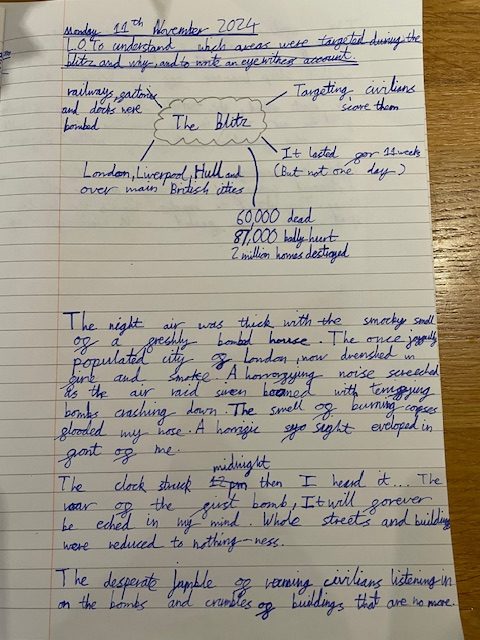 Monday 11th November 2024
L.O. To understand which areas were targeted during the
blitz and why, and to write an eyewitness account.
railways, factories
and docks were
bombed
The Blitz
Targeting civilians
scare them
London, Liverpool, Hull and
over main British cities
It lasted for 11 weeks
(But not one day)
60,000 dead
87,000 badly hurt
2 million homes destroyed
The night air was thick with the smocky smell
of a freshly bombd house. The once joyfully
populated city of London, now drenshed in
fire and smoke. A horrorfying noise screeched
as the air raid siren boomed with terrifying
bombs crashing down. The smell of burning corpses
flooded my nose. A horrific sight eveloped in
front of me.
The clock struck midnight then I heard it... The
roar of the first bomb, It will forever
be eched in my mind. Whole streets and building
were reduced to nothing-ness.
The desperate of civilians listening in
on the bombs and crumbles of buildings that are no more.